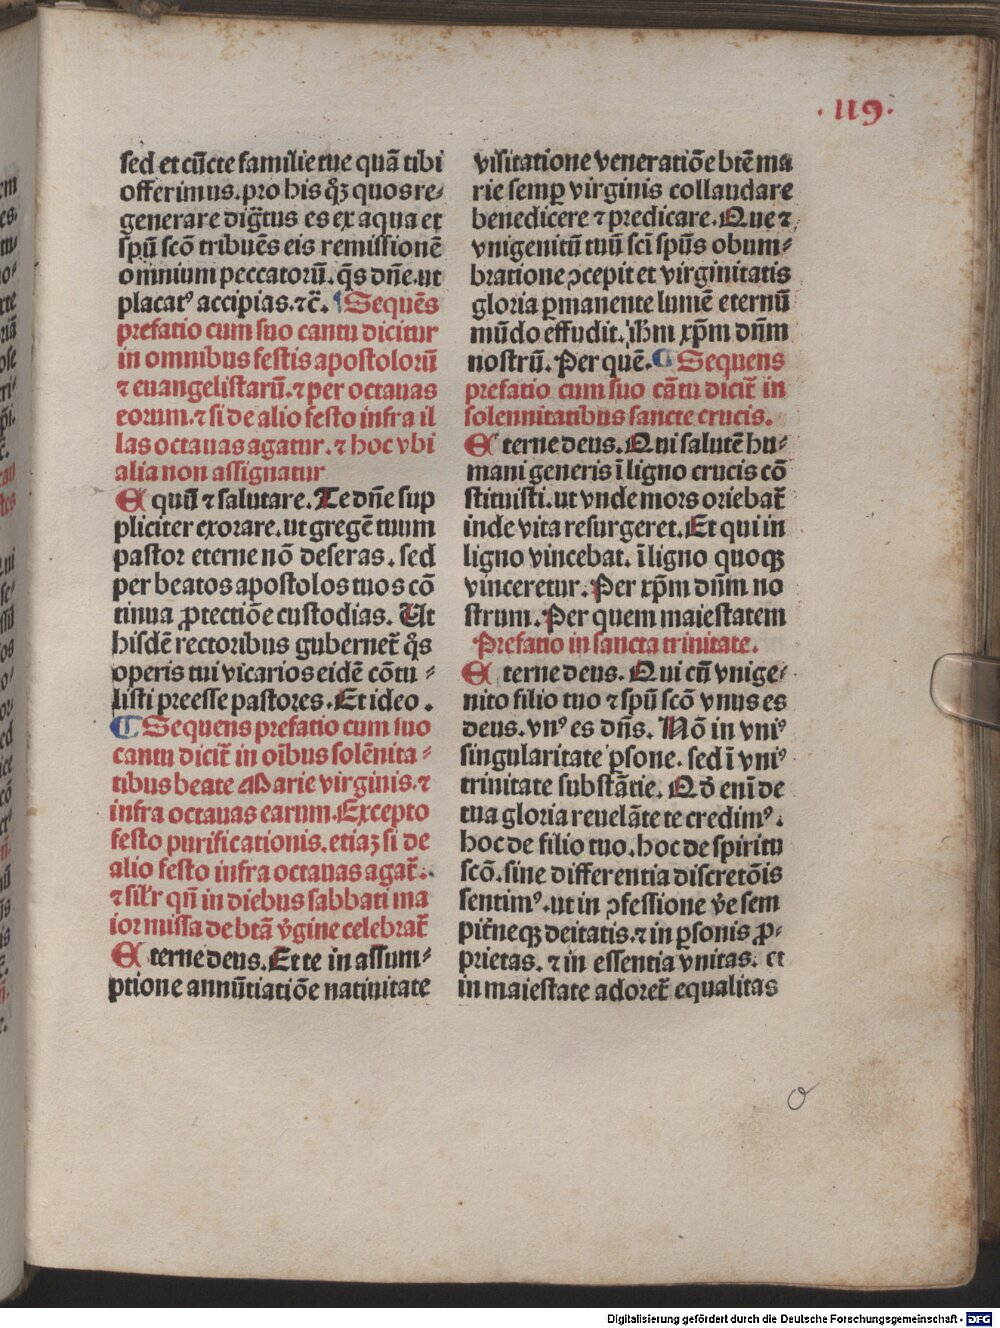 ·119·
sed et cūcte familie tue quā tibi
offerimus. pro his qꝫ quos re⸗
generare dig̃tus es ex aqua et
spũ scō tribuēs eis remissionē
omnium peccatorū. q̄s dn̄e. ut
placatꝰ accipias. ⁊c̄. ¶ Sequēs
prefatio cum suo cantu dicitur
in omnibus festis apostolorū
⁊ euangelistarū. ⁊ per octauas
eorum. ⁊ si de alio festo infra il
las octauas agatur. ⁊ hoc vbi
alia non assignatur
E quū ⁊ salutare. Te dn̄e sup
pliciter exorare. ut gregē tuum
pastor eterne nō deseras. sed
per beatos apostolos tuos cō
tinua ꝓtectiōe custodias. Ut
hisdē rectoribus gubernet᷑ q̄s
operis tui vicarios eidē cōtu⸗
listi preesse pastores. Et ideo.
¶ Sequens prefatio cum suo
cantu dicit᷑ in oībus solēnita⸗
tibus beate Marie virginis. ⁊
infra octauas earum. Excepto
festo purificationis. etiaꝫ si de
alio festo infra octauas agat᷑.
⁊ sil̄r qn̄ in diebus sabbati ma
ior missa de btā v̄gine celebrat᷑
E terne deus. Et te in assum⸗
ptione annūtiatiōe natiuitate
visitatione veneratiōe btē ma
rie semꝑ virginis collaudare
benedicere ⁊ predicare. Que ⁊
vnigenitū tuū sc̄i spūs obum⸗
bratione ꝯcepit et virginitatis
gloria ꝑmanente lumē eternū
mūdo effudit. ih̄m xp̄m dn̄m
nostrū. Per quē. ¶ Sequens
prefatio cum suo cātu dicit᷑ in
solennitatibus sancte crucis.
E terne deus. Qui salutē hu⸗
mani generis ī ligno crucis cō
stituisti. ut vnde mors oriebat᷑
inde vita resurgeret. Et qui in
ligno vincebat. ī ligno quoqꝫ
vinceretur. Per xp̄m dn̄m no
strum. Per quem maiestatem
Prefatio in sancta trinitate.
E terne deus. Qui cū vnige⸗
nito filio tuo ⁊ spū scō vnus es
deus. vnꝰ es dn̄s. Nō in vniꝰ
singularitate ꝑsone. sed ī vniꝰ
trinitate substātie. Qd̄ enī de
tua gloria reuelāte te credimꝰ.
hoc de filio tuo. hoc de spiritu
scō. sine differentia discretōis
sentimꝰ. ut in ꝯfessione v̄e sem
pit̄neqꝫ deitatis. ⁊ in ꝑsonis ꝓ⸗
prietas. ⁊ in essentia vnitas. et
in maiestate adoret᷑ equalitas
o
Digitalisierung gefördert durch die Deutsche Forschungsgemeinschaft - DFG